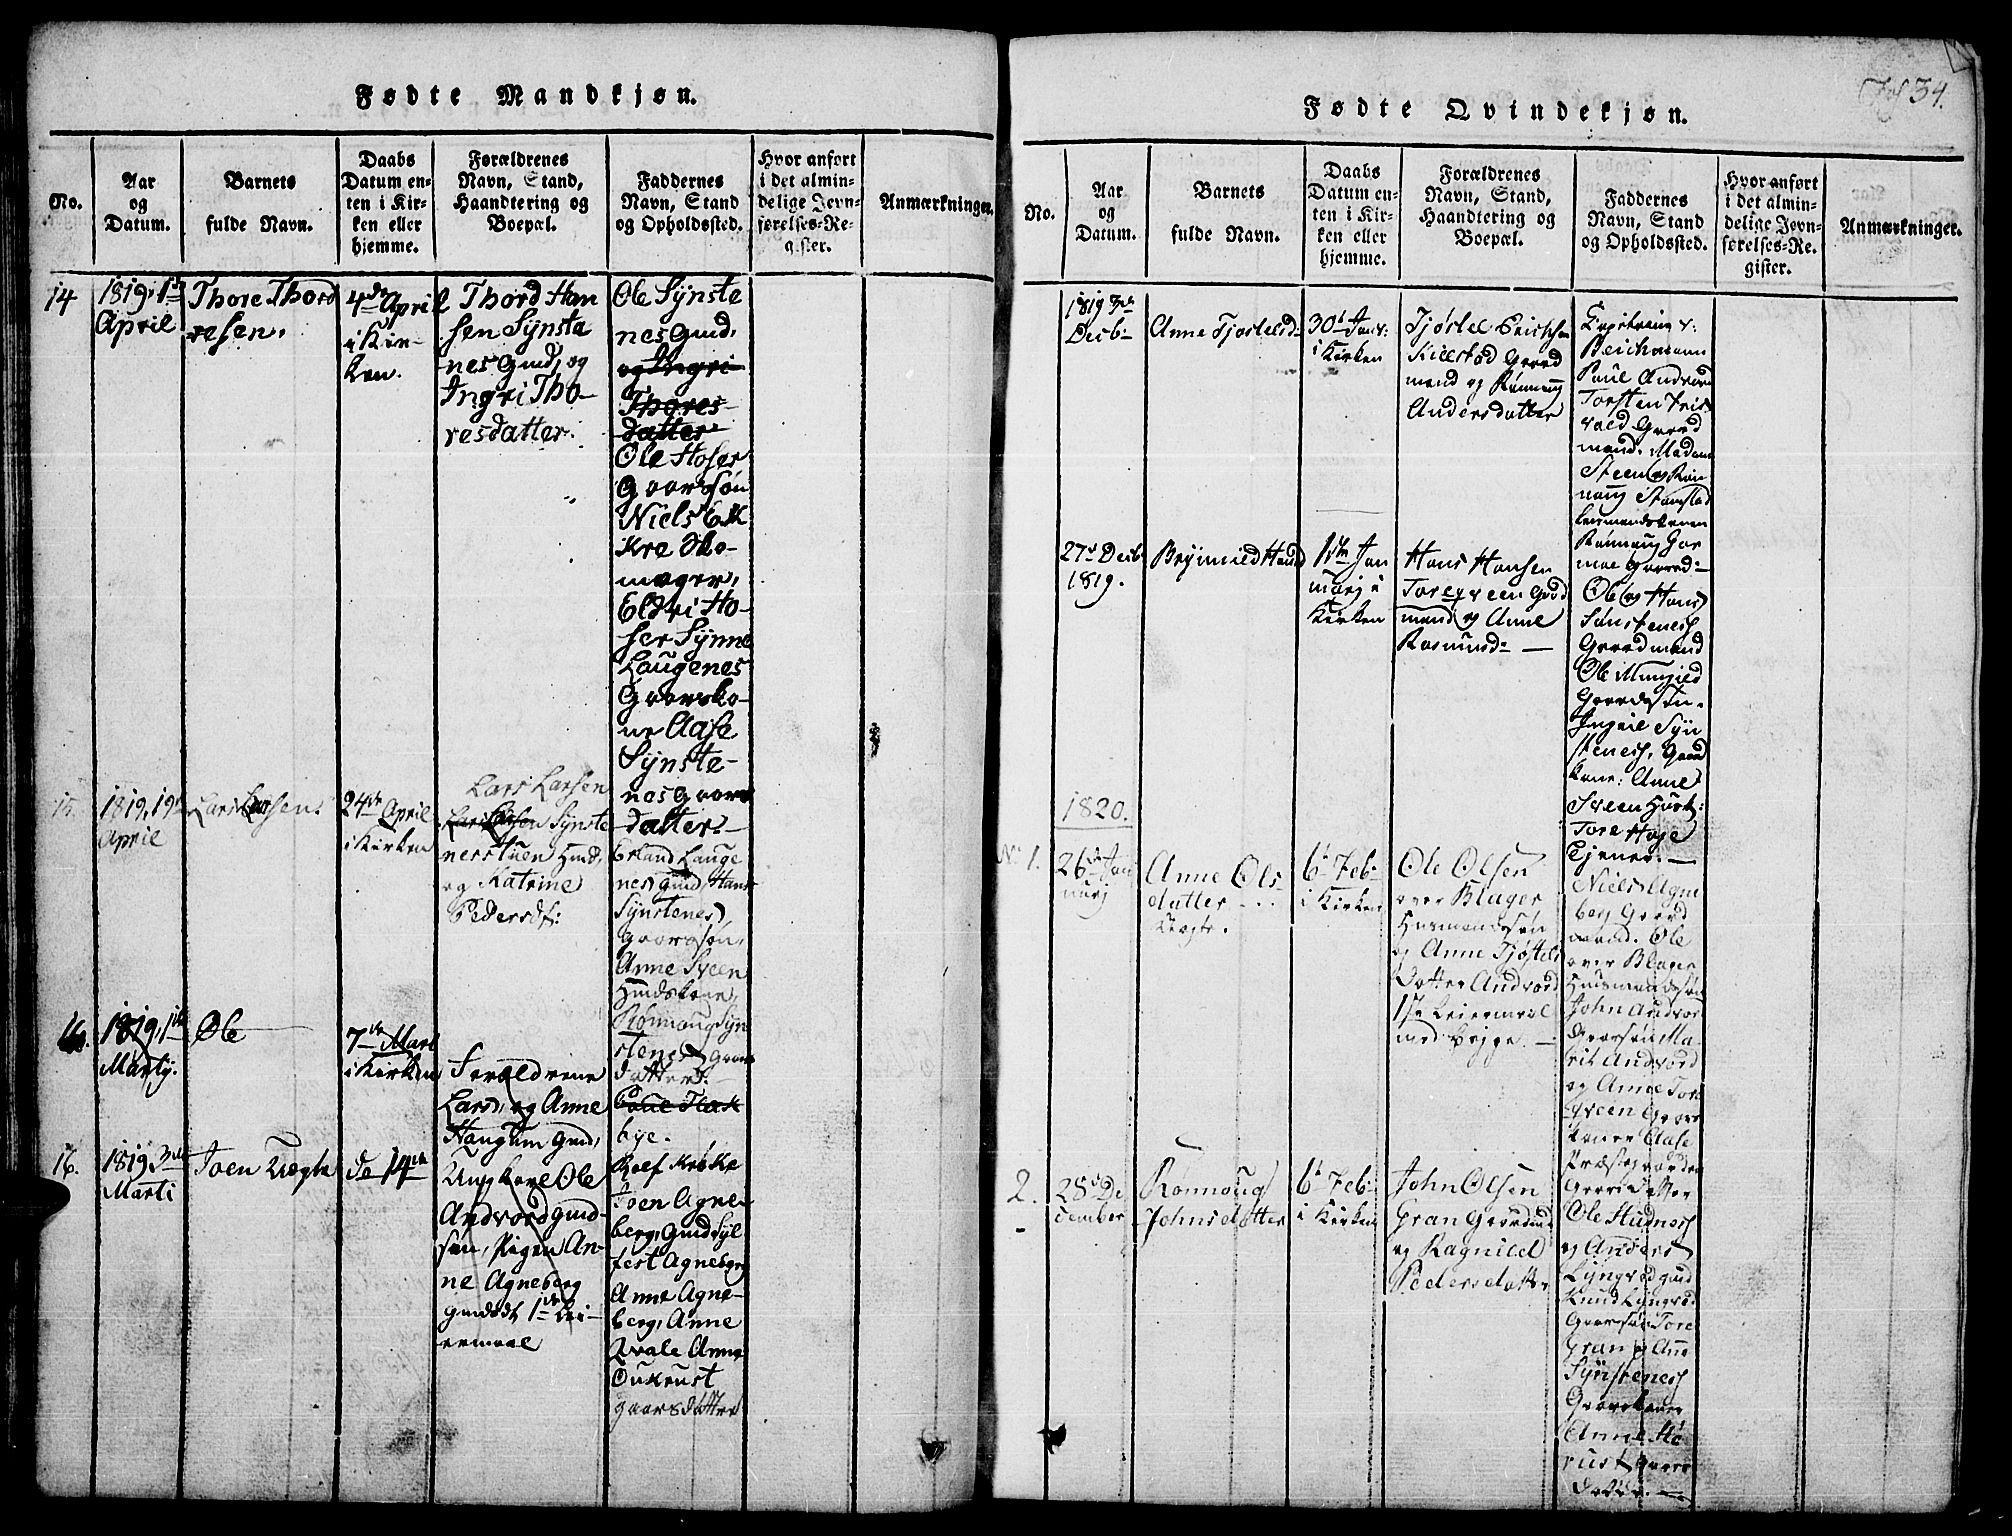 Fødte Mandkjøn.
No.
Aar
og
Datum.
Barnets
fulde Navn.
Daabs
Datum en-
ten i Kir-
ken eller
hjemme.
Forældrenes
Navn, Stand,
Haandtering og
Boepæl.
Faddernes
Navn, Stand
og Opholdssted.
Hvor anført
i det almin-
delige Jevn-
førelses-Re-
gister.
Anmærkninger.
14
1819, 1st
April
Thore Thord
resen.
4de April
i Kir-
ken.
Thord Han
sen Synste
nes Gmd, og
Ingri Tho-
resdatter.
Ole Synste
nes Gmd,
og Ingri
Thores-
datter
Ole Hoser
Gaardsøn
Niels
Kre Sko-
mager,
Eldri Ho-
ser Synne
Laugenes
Gaardsko-
ne Aase
Synste-
nes Gaard
datter.
15.
1819, 19
April
Lars Larsen
24de April
i Kirken
Lars Larsen
Lars Larsen Synste
nesstuen Hmd,
og Katrine
Pedersdt:
Erland Lauge
nes Gmd, Hans
Synstenes
Gaardsøn,
Anne Sveen
Hmdskone,
Rønnoug Syn
stenes Gaard
datter.
16.
1819, 1de
Martij.
Ole
7de Mart
i Kirken
Forældrene
Lars, og Anne
Haugum Gmd,
Poul Flek
bye.
16.
1819, 3de
Marti
Joen Uægte
do 14de
Ungkarl Ole
Andvord gmd-
søn, Pigen An-
ne Agneberg
gmdsdt 1de Lei-
ermaal
Rolf Kroke
Joen Agne-
berg, Gmd Syl
fest Agneberg
Anne Agne-
berg, Anne
Qvale Anne
Oukrust
gaardsdatter
Fol 34.
Fødte Qvindekjøn.
No.
Aar
og
Datum.
Barnets
fulde Navn.
Daabs
Datum en-
ten i Kir-
ken eller
hjemme.
Forældrenes
Navn, Stand,
Haandtering og
Boepæl.
Faddernes
Navn, Stand
og Opholdssted.
Hvor anført
i det almin-
delige Jevn-
førelses-Re-
gister.
Anmærkninger.
1819
Decb
Anne Tjostelsd:
30t Janv:
i Kirken
Tjøstel
Kilestad Gaard
mand og Rønnaug
Andersdatter
Beichmann
Poul Andvord
Torsten Fris
vold Gaard
mand. Madam
Steen og Røn
noug
Rønnoug Gar
moe Gaard-
27d Decb
1819.
Brynild Hansd
1ste Jan
uarj i
Kirken
Hans Hansen
Toregveen Gaard
mand og Anne
Rasmusd: —
Ole og Hans
Sønstenes
Gaardmænd
Ole
Gaardsøn.
Syn
stenes, Gaard
kone: Anne
Sveen Huusk:
Tore Hoje
Tjener. —
1820.
No 1.
26de Jan
uarj
Anne Ols-
datter
Uægte.
6t Feb:
i Kirken
Ole Olsen
over Blager
Husmandssøn
og Anne Tjøstels
Datter Andvord
1ste Leiermaal
med begge. —
Niels Agne
berg Gaard
mand. Ole
over Blager
Husmandssøn
John Andvor
Gaardsøn Ma-
rit Andvord
og Anne Tore
gveen Gaard
koner Aase
Præstegaarden
2.
28d De
cember
Rønnoug
Johnsdatter
6t Feb:
i Kirken
John Olsen
Gran Gaardmd
og Ragnild
Pedersdatter
Ole
og Anders
Lyngved gmd
Knud Lyngved
Gaardsøn Tore
Gran og Anne
Synstenes
Gaardkoner
Anne
rust Gaard